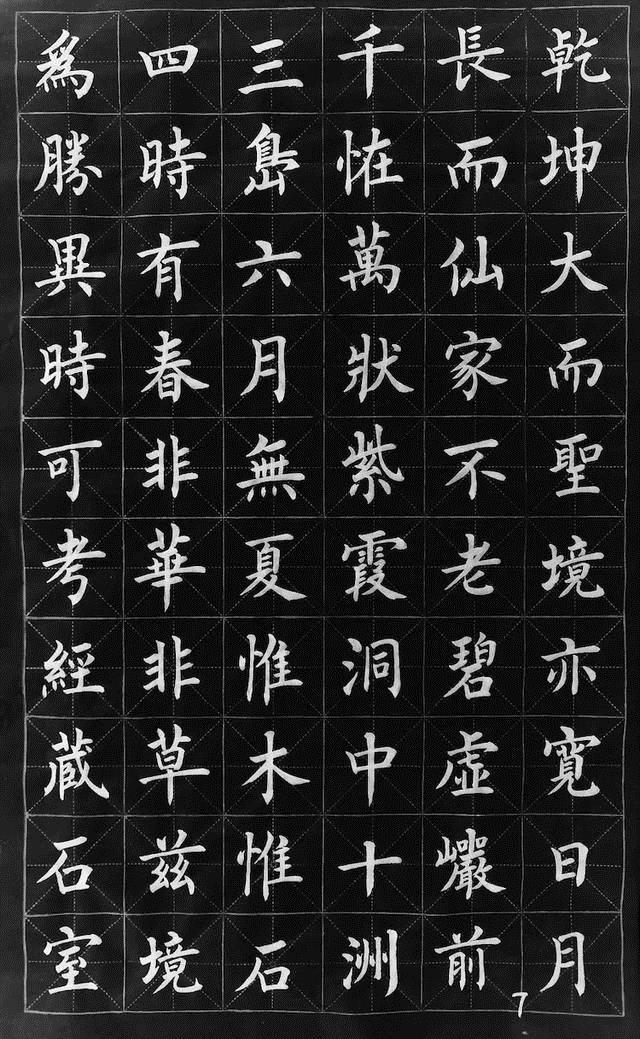 乾坤大而聖境亦寬日月
長而仙家不老碧虛巖前
千恠萬狀紫霞洞中十洲
三島六月無夏惟木惟石
四時有春非華非草茲境
爲勝異時可考經蔵石室
7